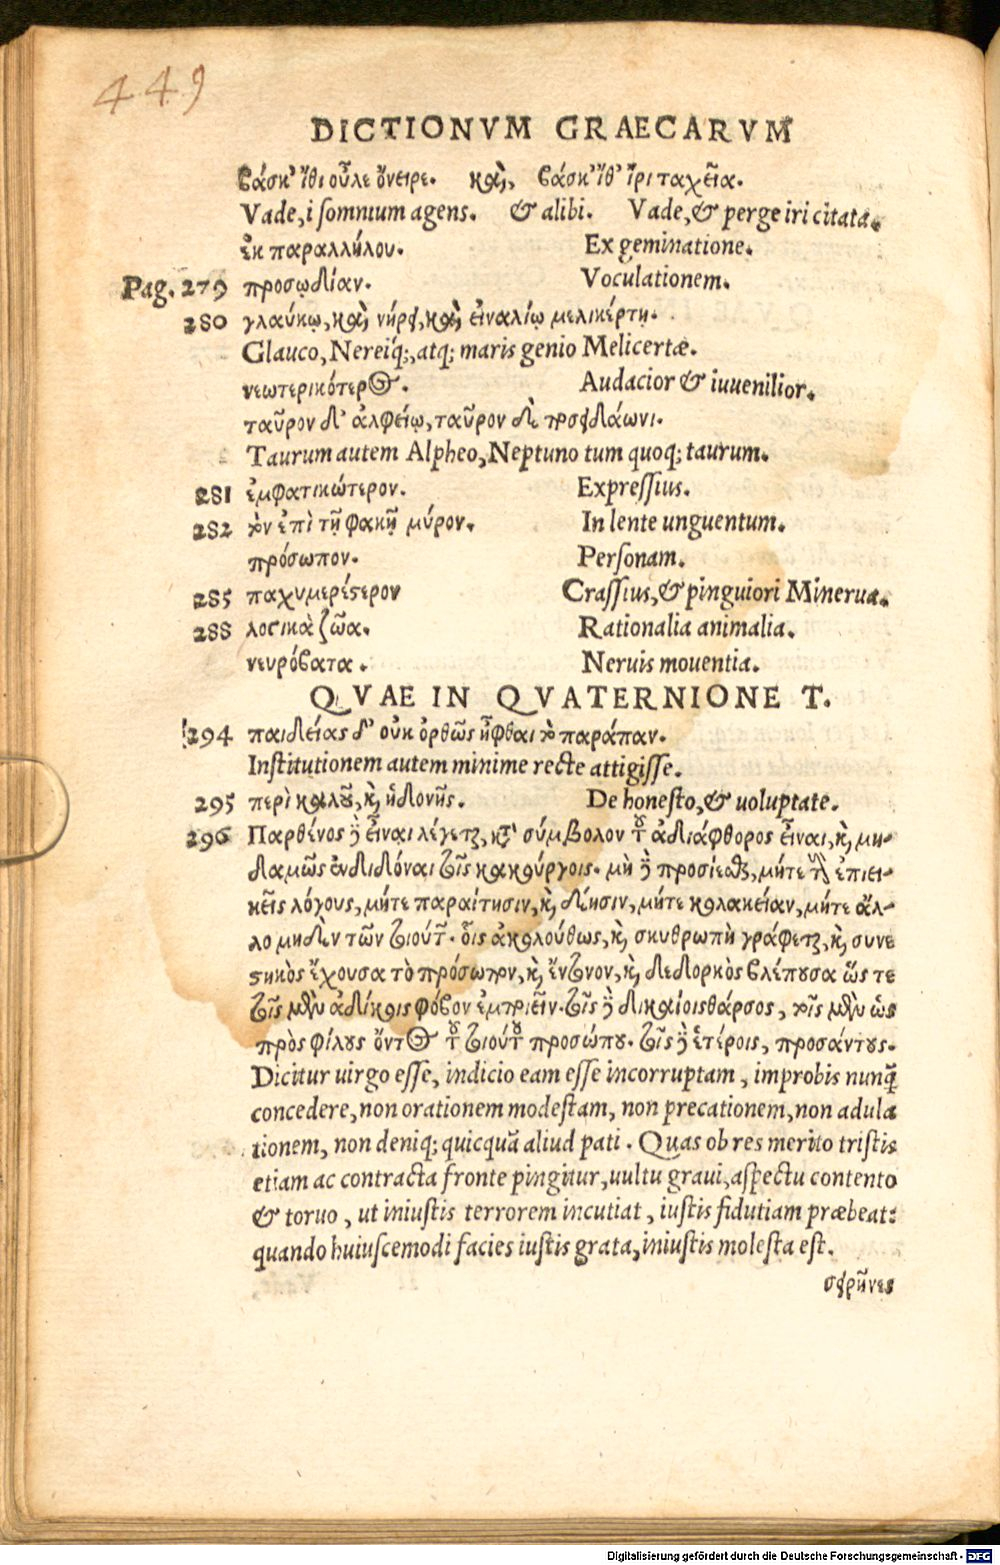 449
DICTIONVM GRAECARVM
βάσκ' ἴθι οὖλε ὄνειρε. καὶ, βάσκ' ἴθ' ἶρι ταχεῖα.
Vade, i somnium agens. & alibi. Vade, & perge iri citata.
ἐκ παραλλήλου. Ex geminatione.
Pag. 279 προσῳδίαν. Voculationem.
280 γλαύκῳ, καὶ νηρεῖ, καὶ εἰναλίῳ μελικέρτῃ.
Glauco, Nereiq;, atq; maris genio Melicertæ.
νεωτερικότερος. Audacior & iuuenilior.
ταῦρον δ' ἀλφείῳ, ταῦρον δὲ ποσειδάωνι.
Taurum autem Alpheo, Neptuno tum quoq; taurum.
281 ἐμφατικώτερον. Expressius.
282 τὸν ἐπὶ τῇ φακῇ μύρον. In lente unguentum.
πρόσωπον. Personam.
285 παχυμερέστερον Crassius, & pinguiori Minerua.
288 λογικὰ ζῶα. Rationalia animalia.
νευρόβατα. Neruis mouentia.
QVAE IN QVATERNIONE T.
294 παιδείας δ' οὐκ ὀρθῶς ἧφθαι τὸ παράπαν.
Institutionem autem minime recte attigisse.
295 περὶ καλοῦ, καὶ ἡδονῆς. De honesto, & uoluptate.
296 Παρθένος δὲ εἶναι λέγεται, κατὰ σύμβολον τοῦ ἀδιάφθορος εἶναι, καὶ μη-
δαμῶς ἐνδιδόναι τοῖς κακούργοις. μὴ δὲ προσίεσθαι, μήτε τοὺς ἐπιει-
κεῖς λόγους, μήτε παραίτησιν, καὶ δέησιν, μήτε κολακείαν, μήτε ἄλ-
λο μηδὲν τῶν τοιούτων. οἷς ἀκολούθως, καὶ σκυθρωπὴ γράφεται, καὶ συνε
στηκὸς ἔχουσα τὸ πρόσωπον, καὶ ἔντονον, καὶ δεδορκὸς βλέπουσα ὥστε
τοῖς μὲν ἀδίκοις φόβον ἐμποιεῖν. τοῖς δὲ δικαίοις θάρσος, τοῖς μὲν ὡς
πρὸς φίλους ὄντος τοῦ τοιούτου προσώπου. τοῖς δὲ ἑτέροις, προσάντους.
Dicitur uirgo esse, indicio eam esse incorruptam, improbis nunq̃
concedere, non orationem modestam, non precationem, non adula
tionem, non deniq; quicquã aliud pati. Quas ob res merito tristis
etiam ac contracta fronte pingitur, uultu graui, aspectu contento
& toruo, ut iniustis terrorem incutiat, iustis fidutiam præbeat:
quando huiuscemodi facies iustis grata, iniustis molesta est.
σειρῆνες
Digitalisierung gefördert durch die Deutsche Forschungsgemeinschaft - DFG